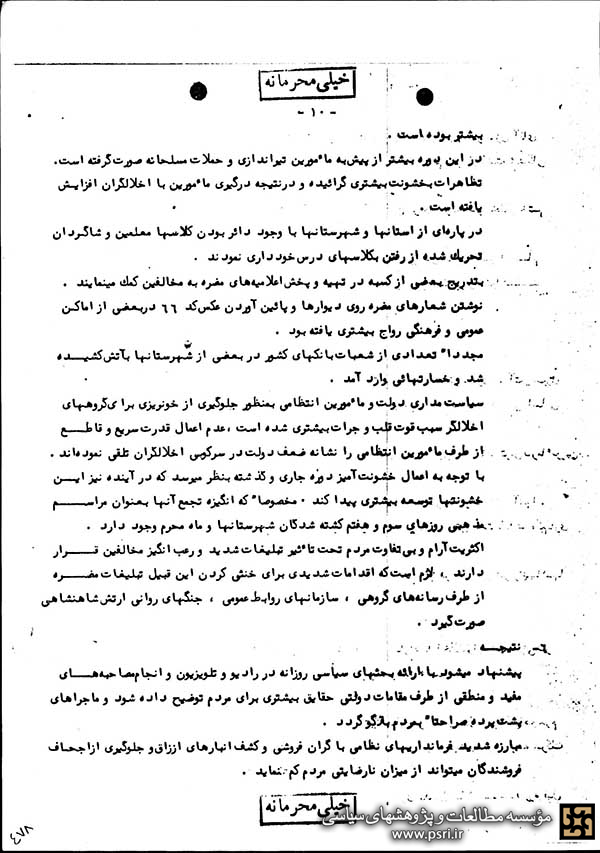 خیلی محرمانه
- ۱۰ -
بیشتر بوده است .
در این دوره بیشتر از پیش به مأمورین تیراندازی و حملات مسلحانه صورت گرفته است،
تظاهرات بخشونت بیشتری گرائیده و درنتیجه درگیری مأمورین با اخلالگران افزایش
یافته است .
در پاره‌ای از استانها و شهرستانها با وجود دائر بودن کلاسها معلمین و شاگردان
تحریک شده از رفتن بکلاسهای درس خودداری نمودند .
بتدریج بعضی از کسبه در تهیه و پخش اعلامیه‌های مضره به مخالفین کمک مینمایند .
نوشتن شعارهای مضره روی دیوارها و پائین آوردن عکس کد ۶۶ دربعضی از اماکن
عمومی و فرهنگی رواج بیشتری یافته بود .
مجدداً تعدادی از شعبات بانکهای کشور در بعضی از شهرستانها بآتش کشیده
شد و خسارتهائی وارد آمد .
سیاست مداری دولت و مأمورین انتظامی بمنظور جلوگیری از خونریزی برای گروههای
اخلالگر سبب قوت قلب و جرات بیشتری شده است ، عدم اعمال قدرت سریع و قاطع
از طرف مأمورین انتظامی را نشانه ضعف دولت در سرکوبی اخلالگران تلقی نموده‌اند .
با توجه به اعمال خشونت‌آمیز دوره جاری و گذشته بنظر میرسد که در آینده نیز این
خشونتها توسعه بیشتری پیدا کند . مخصوصاً که انگیزه تجمع آنها بعنوان مراسم
مذهبی روزهای سوم و هفتم کشته شدگان شهرستانها و ماه محرم وجود دارد .
اکثریت آرام و بی تفاوت مردم تحت تأثیر تبلیغات شدید و رعب انگیز مخالفین قرار
دارند ، لازم است که اقدامات شدیدی برای خنثی کردن این قبیل تبلیغات مضره
از طرف رسانه‌های گروهی ، سازمانهای روابط عمومی ، جنگهای روانی ارتش شاهنشاهی
صورت گیرد .
نتیجه
پیشنهاد میشود با ارائه بحثهای سیاسی روزانه در رادیو و تلویزیون و انجام مصاحبه‌های
مفید و منطقی از طرف مقامات دولتی حقایق بیشتری برای مردم توضیح داده شود و ماجراهای
پشت پرده صراحتاً بمردم بازگو گردد .
مبارزه شدید فرمانداریهای نظامی با گران فروشی و کشف انبارهای ارزاق و جلوگیری از اجحاف
فروشندگان میتواند از میزان نارضایتی مردم کم نماید .
خیلی محرمانه
مؤسسه مطالعات و پژوهشهای سیاسی
www.psri.ir
۴۷۸